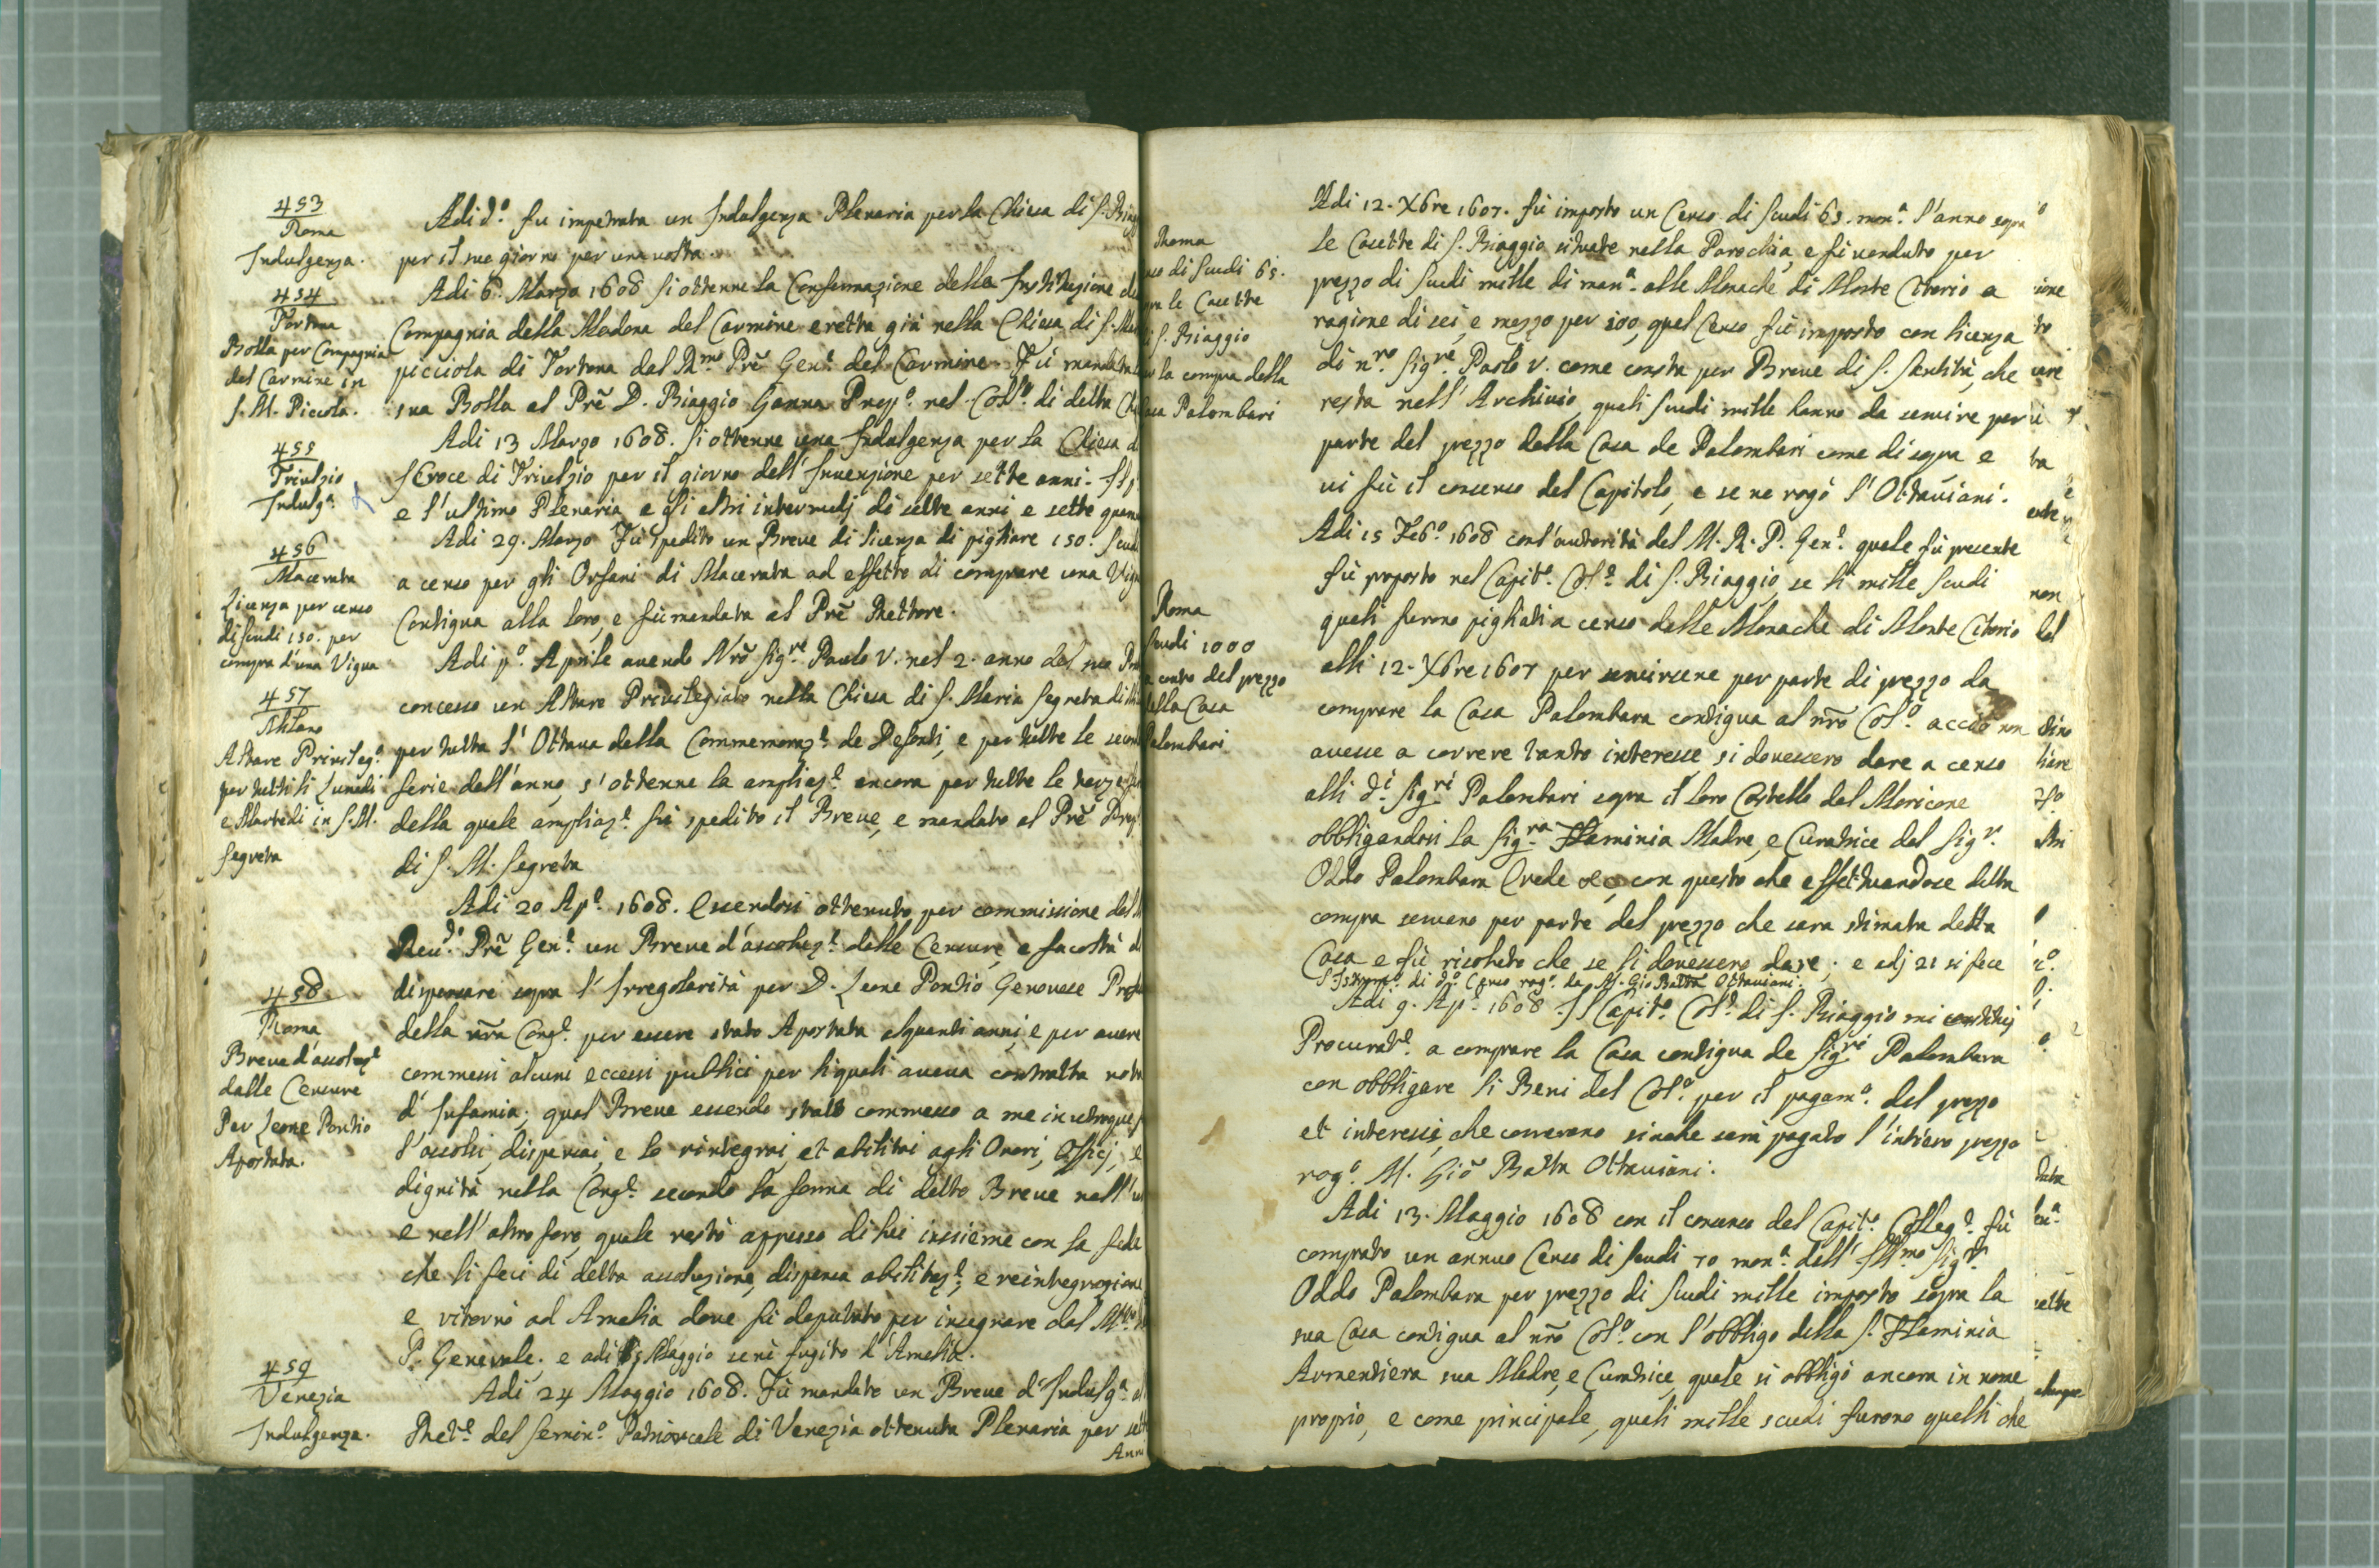 453
Roma
Indulgenza.
Adi d.o fu impetrata un Indulgenza Plenaria per la Chiesa di S. Biag
per il suo giorno per una volta.
454
Tortona
Bolla per Compagnia
del Carmine in
S. M. Piccola.
Adi 6. Marzo 1608 si ottenne la Confermazione della Instituzione de
Compagnia della Madona del Carmine eretta già nella Chiesa di S. Ma
picciola di Tortona dal R.mo Prē Gen.e del Carmine. Fù mandata
sua Bolla al Prē D. Biaggio Ganna Prep.o nel Coll.o di detta Chi
455
Triulzio
Indulg.a
Adi 13 Marzo 1608. si ottenne una Indulgenza per la Chiesa d
S Croce di Triulzio per il giorno dell'Invenzione per sette anni. Il p
e l'ultimo Plenaria e gli altri intermedj di sette anni e sette quara
456
Macerata
Licenza per censo
di scudi 150. per
compra d'una Vigna
Adi 29. Marzo Fù spedito un Breve di licenza di pigliare 150. scud
a censo per gli Orfani di Macerata ad effetto di comprare una Vign
Contigua alla loro, e fù mandata al Prē Rettore.
457
Milano
Altare Privileg.o
per tutti li Lunedi
e Martedi in S. M.
Segreta
Adi p.o Aprile avendo Nrō Sig.re Paolo V. nel 2. anno del suo Pon
concesso un Altare Privilegiato nella Chiesa di S. Maria Segreta di Mi
per tutta l'Ottava della Commemoraz.e de Defonti, e per tutte le secon
ferie dell'anno, s'ottenne la ampliaz.e ancora per tutte le terze fe
della quale ampliaz.e fù spedito il Breve, e mandato al Prē Prep.
di S. M. Segreta
458
Roma
Breve d'assoluz.e
dalle Censure
Per Leone Pontio
Apostata.
Adi 20 Ap.e 1608. Essendosi ottenuto per commissione del
Reu.do Prē Gen.e un Breve d'assoluz.e dalle Censure, e facoltà d
dispensare sopra l'Irregolarità per D. Leone Pontio Genovese Profe
della nrā Cong.e per essere stato Apostata alquanti anni, e per avere
commessi alcuni eccessi publici per li quali aveva contratta nota
d'Infamia; qual Breve essendo stato commesso a me in utroque f
l'assolsi, dispensai, e lo rintegrai, et abilitai agli Onori, Officj, e
dignità nella Cong.e secondo la forma di detto Breve nell'u
e nell'altro foro, quale restò appresso di lui insieme con la fede
che li feci di detta assoluzione, dispensa abilitaz.e, e reintegrazione
e ritornò ad Amelia dove fù deputato per insegnare dal
P. Generale. e adi Maggio se nè fugito d'Amelia.
459
Venezia
Indulgenza.
Adi 24 Maggio 1608. Fù mandato un Breve d'Indulg.a al
Ret.e del Semin.o Patriarcale di Venezia ottenuta Plenaria per sett
Anni
Roma
so di Scudi 65.
pra le Casette
i S. Biaggio
r la compra della
asa Palombari
Adi 12. Xbre 1607. fù imposto un Censo di Scudi 65. mon.a l'anno sopra
le Casette di S. Biaggio situate nella Parochia, e fù venduto per
prezzo di Scudi mille di mon.a alle Monache di Monte Citorio a
ragione di sei, e mezzo per 100, qual Censo fù imposto con licenza
di n.ro Sig.re Paolo V. come consta per Breve di S. Santità, che
resta nell'Archivio, quali Scudi mille hanno da servire per
parte del prezzo della Casa de Palombari come di sopra e
vi fù il consenso del Capitolo, e se ne rogò l'Ottaviani.
Roma
Scudi 1000
a conto del prezzo
della Casa
Palombari
Adi 15 Feb.o 1608 con l'autorità del M. R. P. Gen.e quale fù presente
fù proposto nel Capit.o Col.e di S. Biaggio, se li mille Scudi
quali furono pigliati a censo dalle Monache di Monte Citorio
alli 12. Xbre 1607 per servirsene per parte di prezzo da
comprare la Casa Palombara contigua al nrō Col.o acciò non
avesse a correre tanto interesse si dovessero dare a censo
alli d.i Sig.ri Palombari sopra il loro Castello del Moricone
obbligandosi la Sig.ra Flaminia Madre, e Curatrice del Sig.r
Oddo Palombara Erede &c, con questo che effettuandose detta
compra servano per parte del prezzo che sara stimata detta
Casa e fù risoluto che se li dovessero dare; e adj 21 si fece
l'Istrum.o di d.o Censo rog.o da M. Gio Batta Ottaviani.
Adi 9. Ap.e 1608 Il Capit.o Col.e di S. Biaggio mi constituj
Procurat.e a comprare la Casa contigua de Sig.ri Palombara
con obbligare li Beni del Col.o per il pagam.o del prezzo
et interessi, che correrano sinche sarà pagato l'intiero prezzo
rog.o M. Giō Batta Ottaviani.
Adi 13. Maggio 1608 con il consenso del Capit.o Colleg.e fù
comprato un annuo Censo di Scudi 70 mon.a dell'Ill.mo Sig.r
Oddo Palombara per prezzo di Scudi mille imposto sopra la
sua Casa contigua al nrō Col.o con l'obbligo della S. Flaminia
Armentiera sua Madre, e Curatrice, quale si obbligò ancora in nome
proprio, e come principale, quali mille scudi furono quelli che